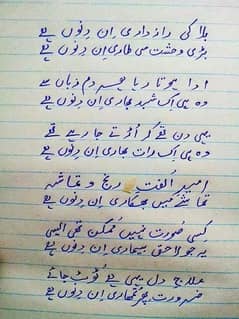 بلا کی رازداری اِن دِنوں ہے
بڑی وحشت سی طاری اِن دِنوں ہے
ادا ہوتا رہا جو دم زباں سے
وہی اک شبد بھاری اِن دِنوں ہے
یہی دن تھے کہ اُڑتے جا رہے تھے
وہی اک رات بھاری اِن دِنوں ہے
امید اُلفت رنج و تماشہ
بھکاری اِن دِنوں ہے
کِسی صُورت نہیں مُمکن تھی ایسی
یہ جو لاحق بیماری اِن دِنوں ہے
علاجِ دل یہی ہے ٹُوٹ جائے
ضرورت پھر تمھاری اِن دِنوں ہے